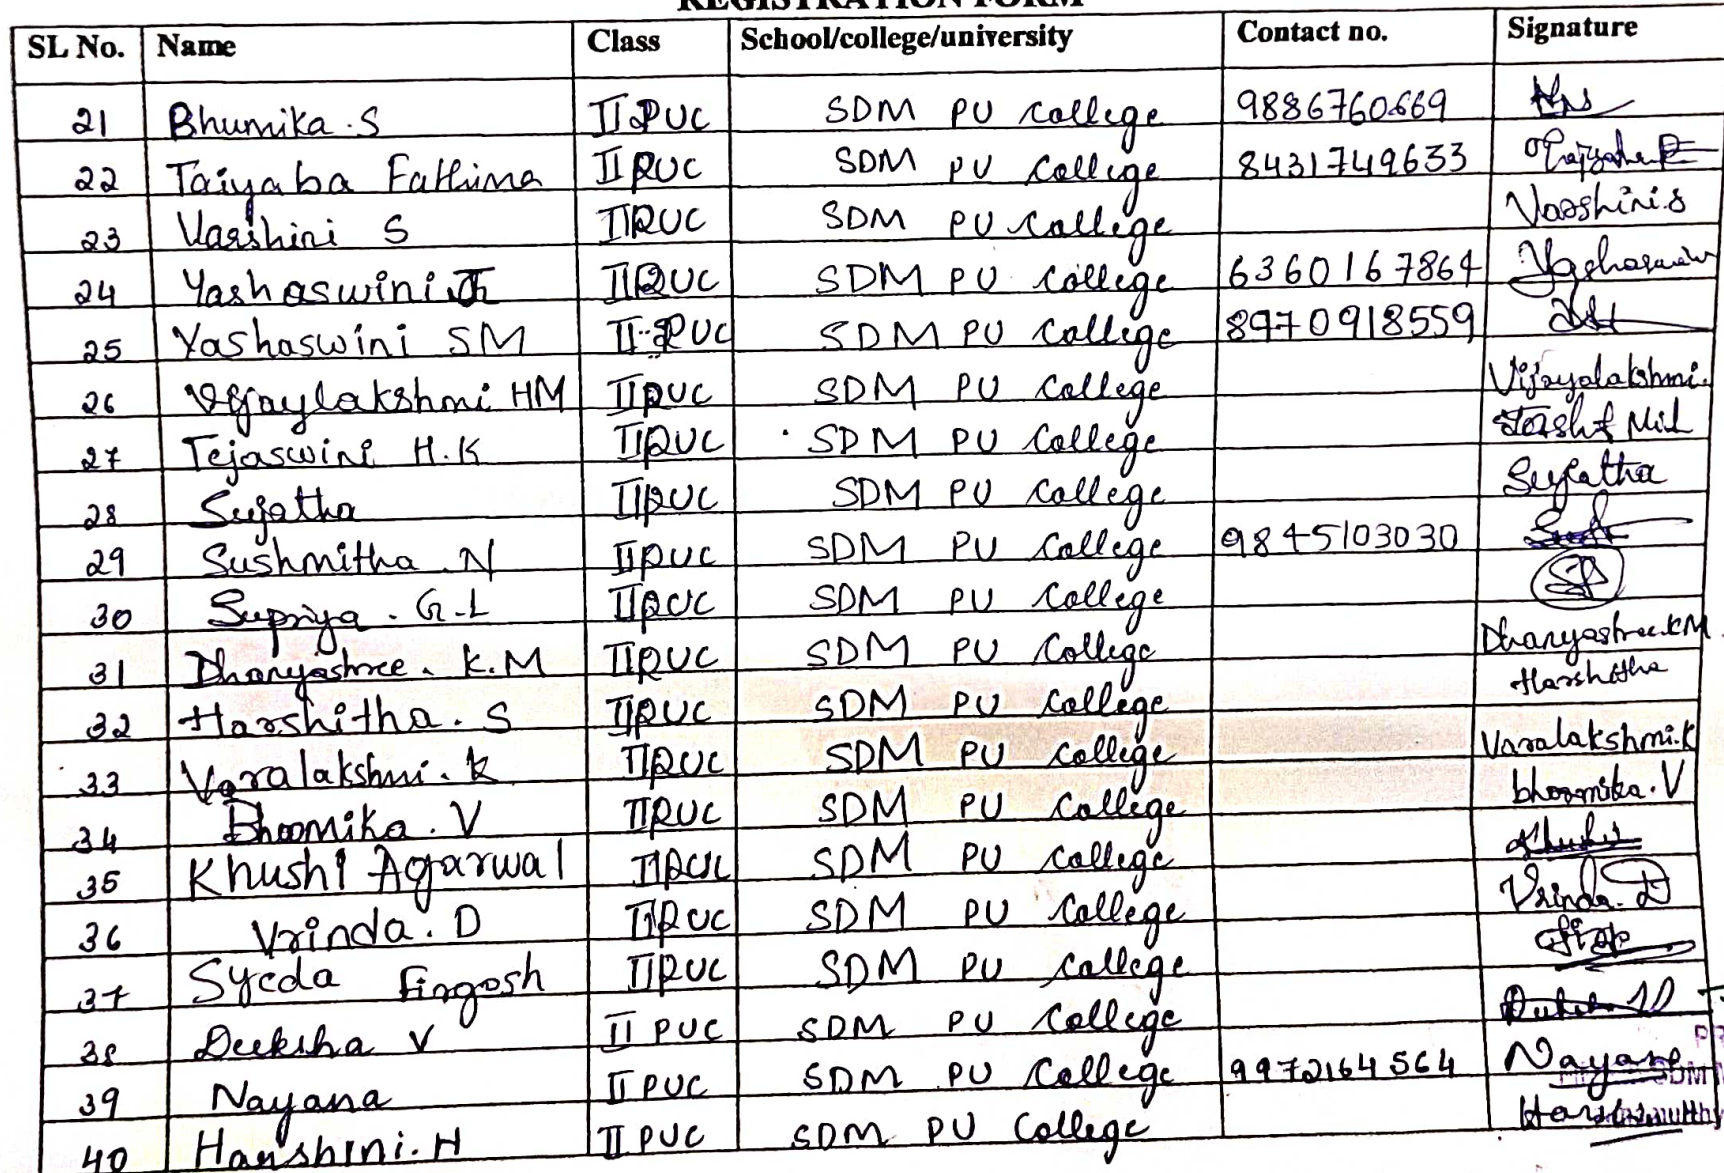 REGISTRATION FORM
SL No. Name Class School/college/university Contact no. Signature
21 Bhumika.S II PUC SDM PU College 9886760669
22 Taiyaba Fathima II PUC SDM PU College 8431749633
23 Varshini S II PUC SDM PU College Varshini.S
24 Yashaswini.J II PUC SDM PU College 6360167864 Yashaswini
25 Yashaswini SM II PUC SDM PU College 8970918559
26 Vijaylakshmi HM II PUC SDM PU College Vijayalakshmi.
27 Tejaswini H.K II PUC SDM PU College
28 Sujatha II PUC SDM PU College Sujatha
29 Sushmitha N II PUC SDM PU College 9845103030
30 Supriya. G.L II PUC SDM PU College
31 Dhanyashree. K.M II PUC SDM PU College Dhanyashree.KM
32 Harshitha. S II PUC SDM PU College Harshitha
33 Varalakshmi. K II PUC SDM PU College Varalakshmi.K
34 Bhoomika. V II PUC SDM PU College bhoomika.V
35 Khushi Agarwal II PUC SDM PU College
36 Vrinda. D II PUC SDM PU College Vrinda.D
37 Syeda Firgosh II PUC SDM PU College
38 Deeksha V II PUC SDM PU College
39 Nayana II PUC SDM PU College 9972164564 Nayana
40 Harshini.H II PUC SDM PU College